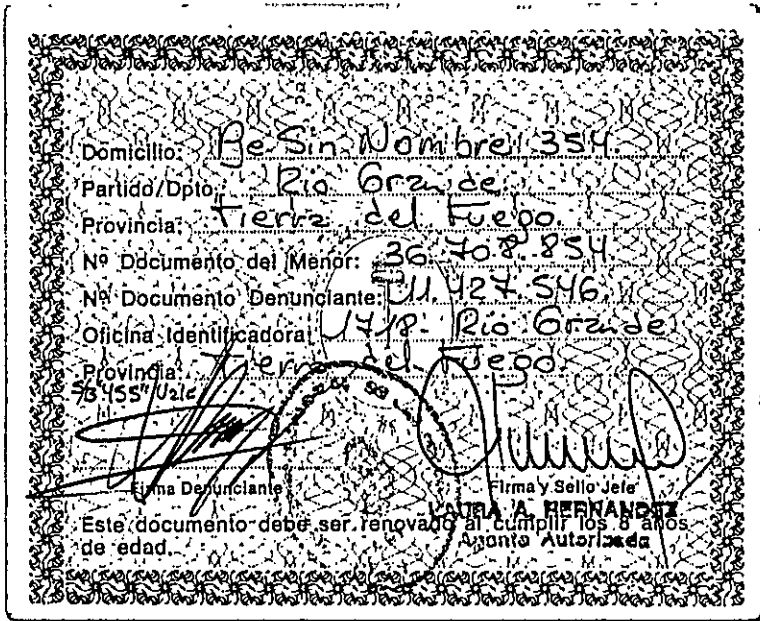 Domicilio: Pje Sin Nombre 354.
Partido/Dpto.: Rio Grande
Provincia: Tierra del Fuego
Nº Documento del Menor: 36.708.854
Nº Documento Denunciante: 11.427.546.
Oficina Identificadora 1718- Rio Grande
Provincia: Tierra del Fuego.
S/3 "455"
Firma Denunciante Firma y Sello Jefe
LAURA A. HERNANDEZ
Este documento debe ser renovado al cumplir los 8 años
de edad. Autorizada